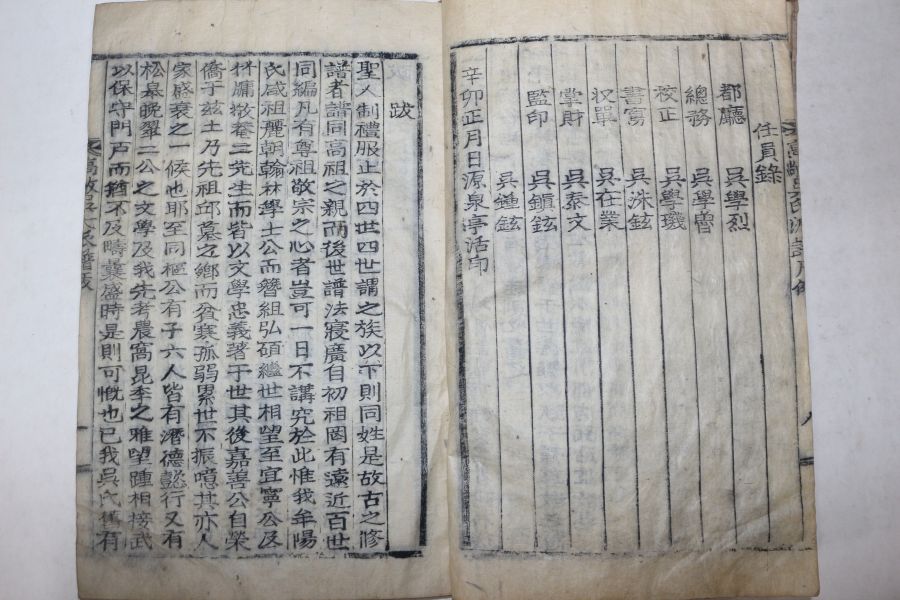 任員錄
都廳 吳學烈
總務 吳學魯
校正 吳學璣
書寫 吳洙鉉
收單 吳在業
掌財 吳泰文
監印 吳鎭鉉
吳鍾鉉
辛卯正月日源泉亭活印
跋
聖人制禮服止於四世四世謂之族以下則同姓是故古之修
譜者譜同高祖之親而後世譜法寖廣自初祖罔有遠近百世
同編凡有尊祖敬宗之心者豈可一日不講究於此惟我牟陽
氏咸祖麗朝翰林學士公而簪組弘碩繼世相望至宜寧公及
竹牖敬菴三先生而皆以文學忠義著于世其後嘉善公自榮
僑于玆土乃先祖邱墓之鄕而貧寒孤弱累世不振噫其亦人
家盛衰之一候也耶至同樞公有子六人皆有潛德懿行又有
松皐晩翠二公之文學及我先考農窩昆季之雅望踵相接武
以保守門戶而猶不及疇曩盛時是則可慨也已我吳氏舊有